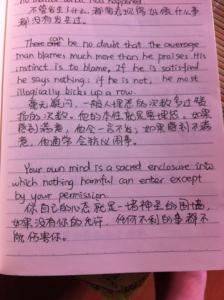 不管发生什么，都简着现像什么事
都没有发生过。
There can be no doubt that the average
man blames much more than he praises. His
instinct is to blame. If he is satisfied
he says nothing; if he is not, he most
illogically kicks up a row.
毫无疑问，一般人埋怨的次数多过赞
扬的次数。他的本性就是埋怨，如果
感到满意，他会一言不发；如果感到不满
意，他通常会
Your own mind is a sacred enclosure into
which nothing harmful can enter except
by your permission.
你自己的心态就是一诸神圣的围墙，
如果没有你的允许，任何不利的事都不
能伤害你。